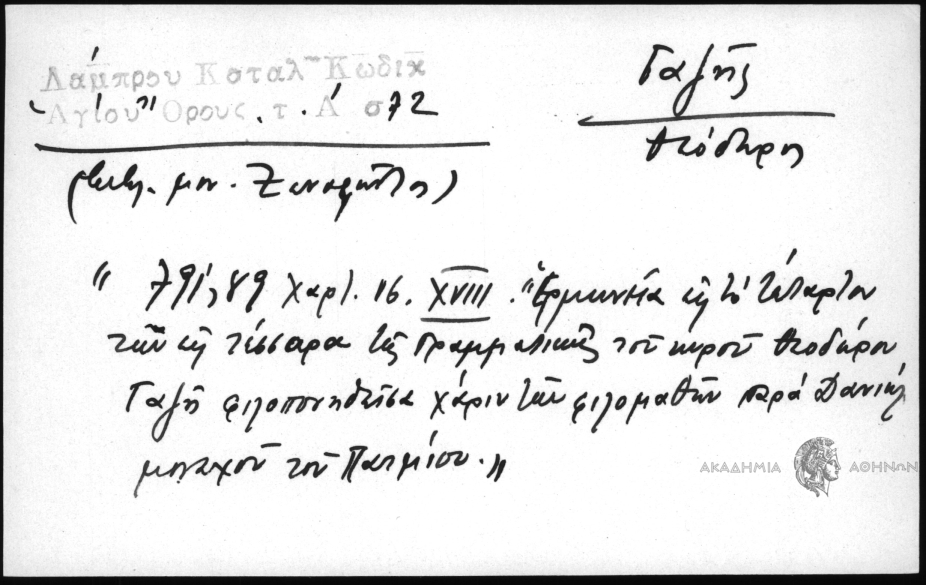 Λάμπρου Καταλ. Κωδίκ
Ἁγίου Ὄρους. τ. Α΄ σ 72
(Βιβλ. μον. Ξενοφῶντος)
Γαζῆς
Θεόδωρος
" 791, 89 Χαρτ. 16. XVIII. "Ἑρμηνεία εἰς τὸ τέταρτον
τῶν εἰς τέσσαρα τῆς Γραμματικῆς τοῦ κυροῦ Θεοδώρου
Γαζῆ φιλοπονηθεῖσα χάριν τῶν φιλομαθῶν παρὰ Δανιὴλ
μοναχοῦ τοῦ Πατμίου."
ΑΚΑΔΗΜΙΑ ΑΘΗΝΩΝ